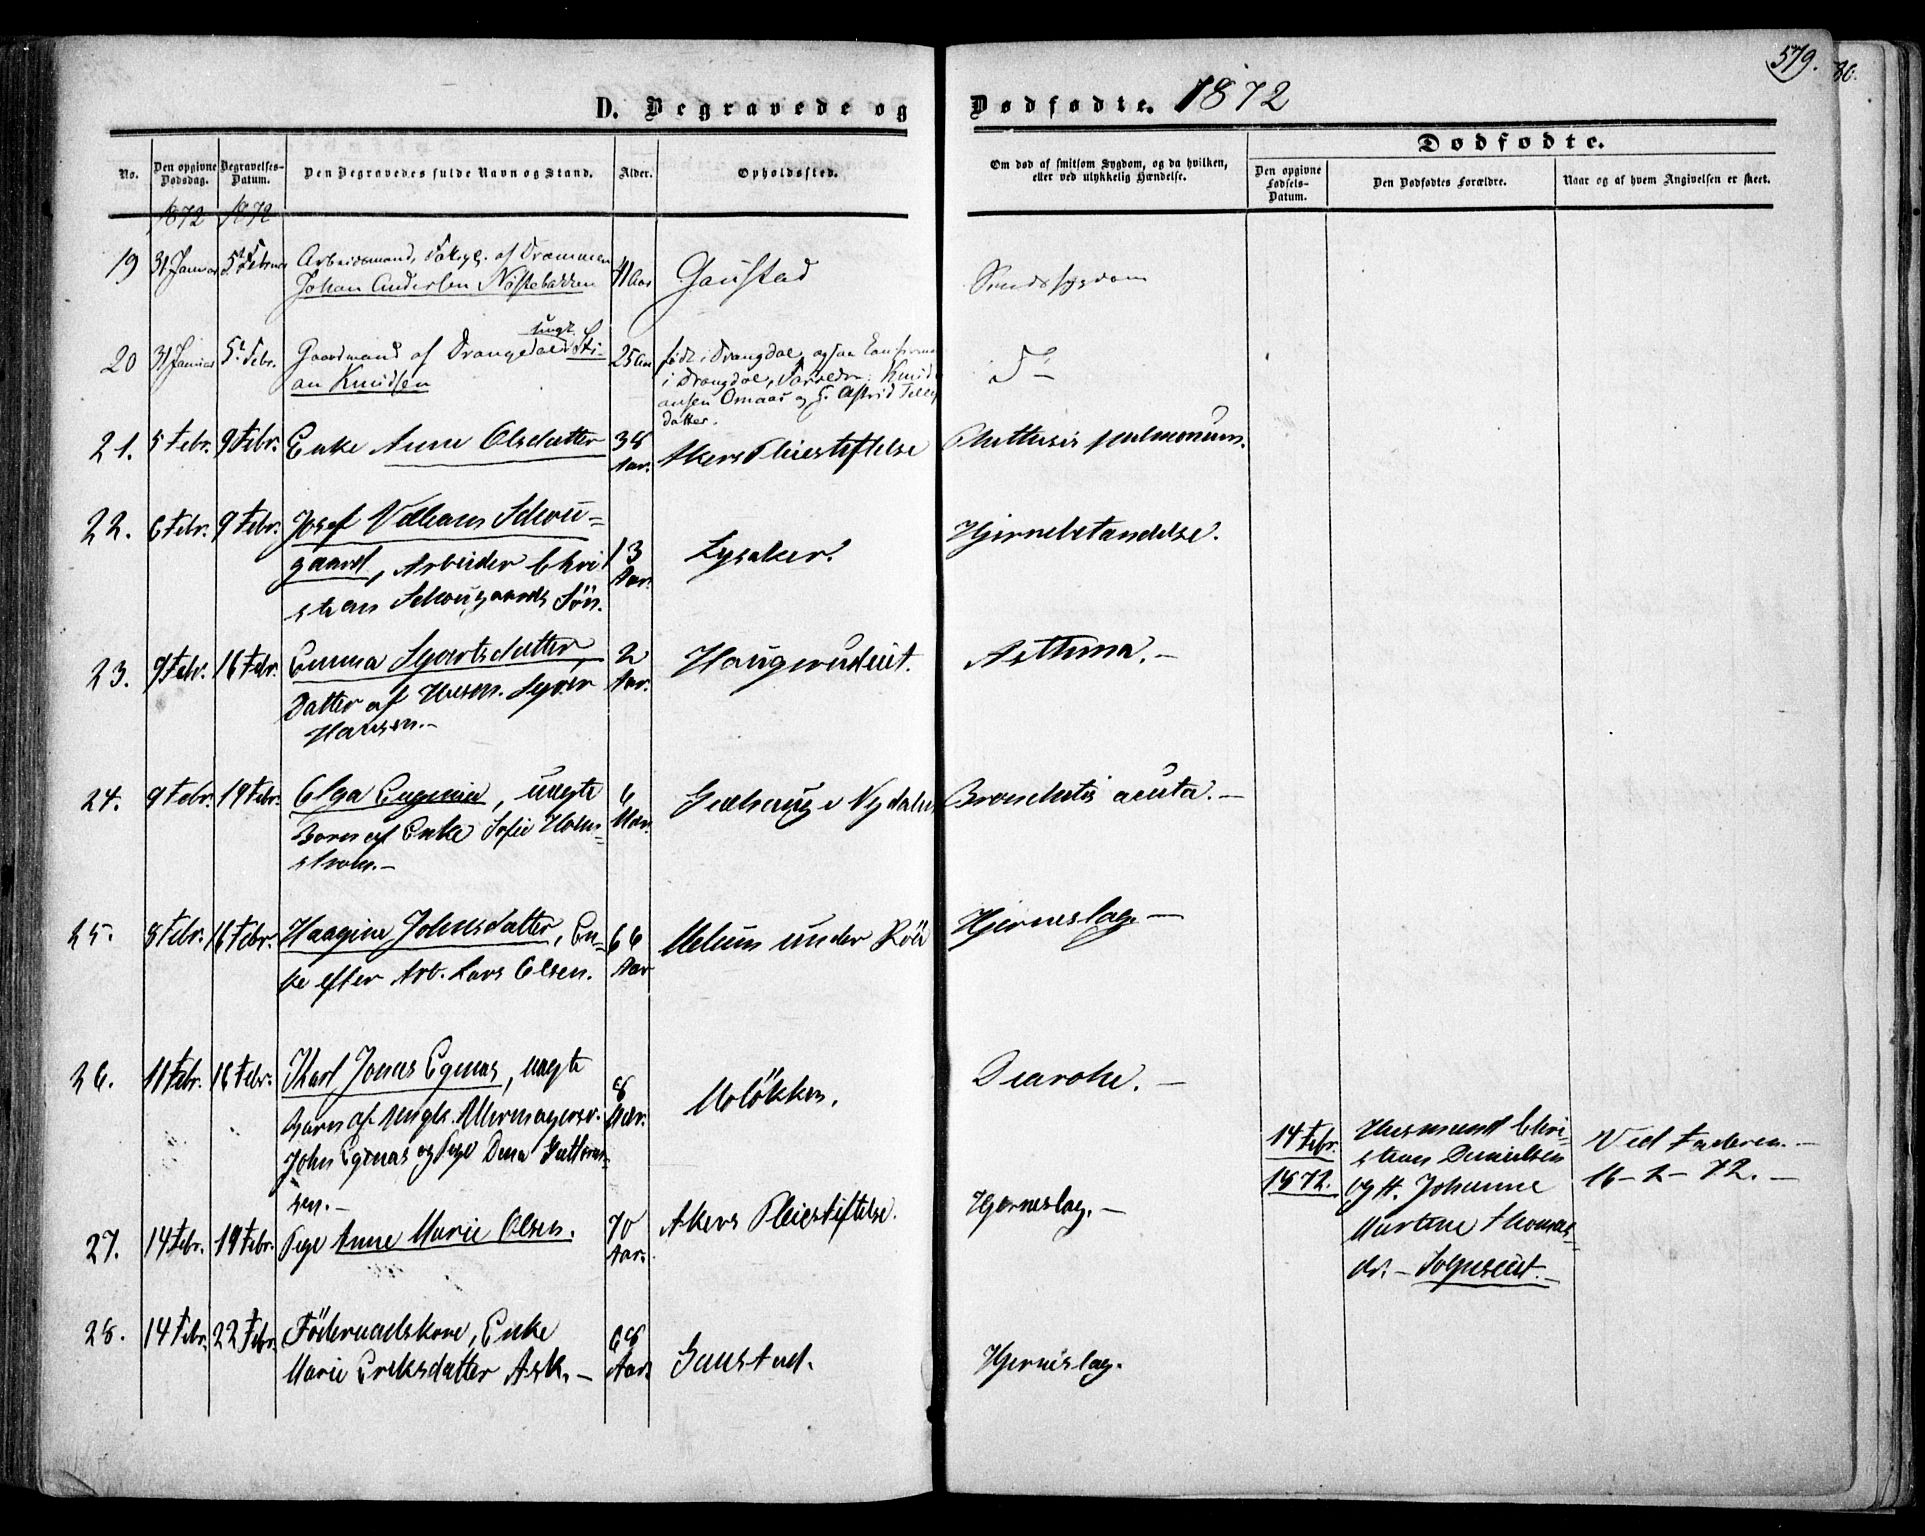 579.
D. Begravede og Dødfødte. 1872
Dødfødte.
No.
Den opgivne Dødsdag.
Begravelses-Datum.
Den Begravedes fulde Navn og Stand.
Alder.
Opholdssted.
Om død af smitsom Sygdom, og da hvilken, eller ved ulykkelig Hændelse.
Den opgivne Fødsels-Datum.
Den Dødfødtes Forældre.
Naar og af hvem Angivelsen er skeet.
1872 1872
19 31 Januar 5t Februar Arbeidsmand, af Drammen 41 Aar Gaustad Sindssygdom
Johan Andersen
20 31 Januar 5t Febr. Gaardmand af Drangedal ungk. Sti- 25 Aar født i Drangdal, ogsaa Konfirm
an Knudsen
i Drangdal, Forældre: Knud
Omaas og H. Astrid
datter.
21. 5 Febr. 9 Febr. Enke Anne Olsdatter 38 Aar. Akers Pleiestiftelse Phttisis pulmonum.
22. 6 Febr. 9 Febr. Josef Vilhelm Schou-
gaard, Arbeider Chri 13 Aar. Lysaker. Hjernebetændelse.
stian Schougaards Sön.
23. 9 Febr. 16 Febr. Emma Syvertsdatter, 2 Aar. Haugerudeiet. Asthma. —
Datter af Husm. Syver
Hansen. —
24. 9 Febr. 19 Febr. Olga Eugenie, uægte 6 Maan. i Nydalen Bronchitis acuta. —
Barn af Enke Sofie Holm-
strøm. —
25. 8 Febr. 16 Febr. Haagine Johnsdatter, En- 66 Aar Melum under Röa Hjerneslag. —
ke efter Arb. Lars Olsen.
26. 11 Febr. 16 Febr. Karl Jonas Egnas, uægte 8 Molökken. Diarohe. —
Barn af Ungk.
John Egnas og Pige Dina Guttorm-
sen. —
27. 14 Febr. 19 Febr. Pige Anne Marie Olsen. 70 Aar. Akers Pleiestiftelse. Hjerneslag. —
28. 14 Febr. 22 Febr. Föderaadskone, Enke 68 Aar.
Marie Eriksdatter Ask. — Gaustad. Hjerneslag.
14 Febr. 1872. Husmand Chri-
stian Danielsen
og H. Johanne
Martine Thomas-
dr. — Sognseiet. —
Ved Faderen. —
16 – 2 – 72. —